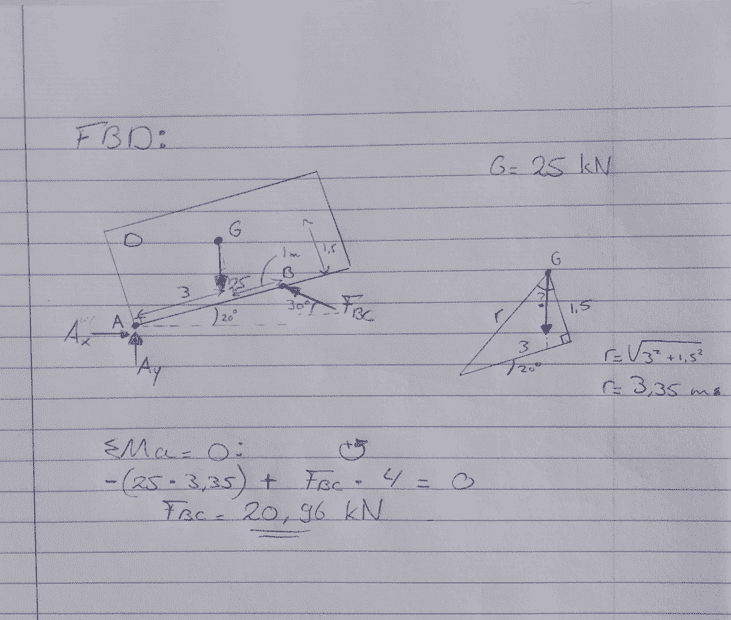 FBD:
G = 25 kN
G
1,5
1m
B
3
25
30°
F_BC
A
20°
Ax
Ay
G
r
?
1,5
3
20°
r = √3² + 1,5²
r = 3,35 m
ΣMa = 0: +
-(25 · 3,35) + F_BC · 4 = 0
F_BC = 20,96 kN